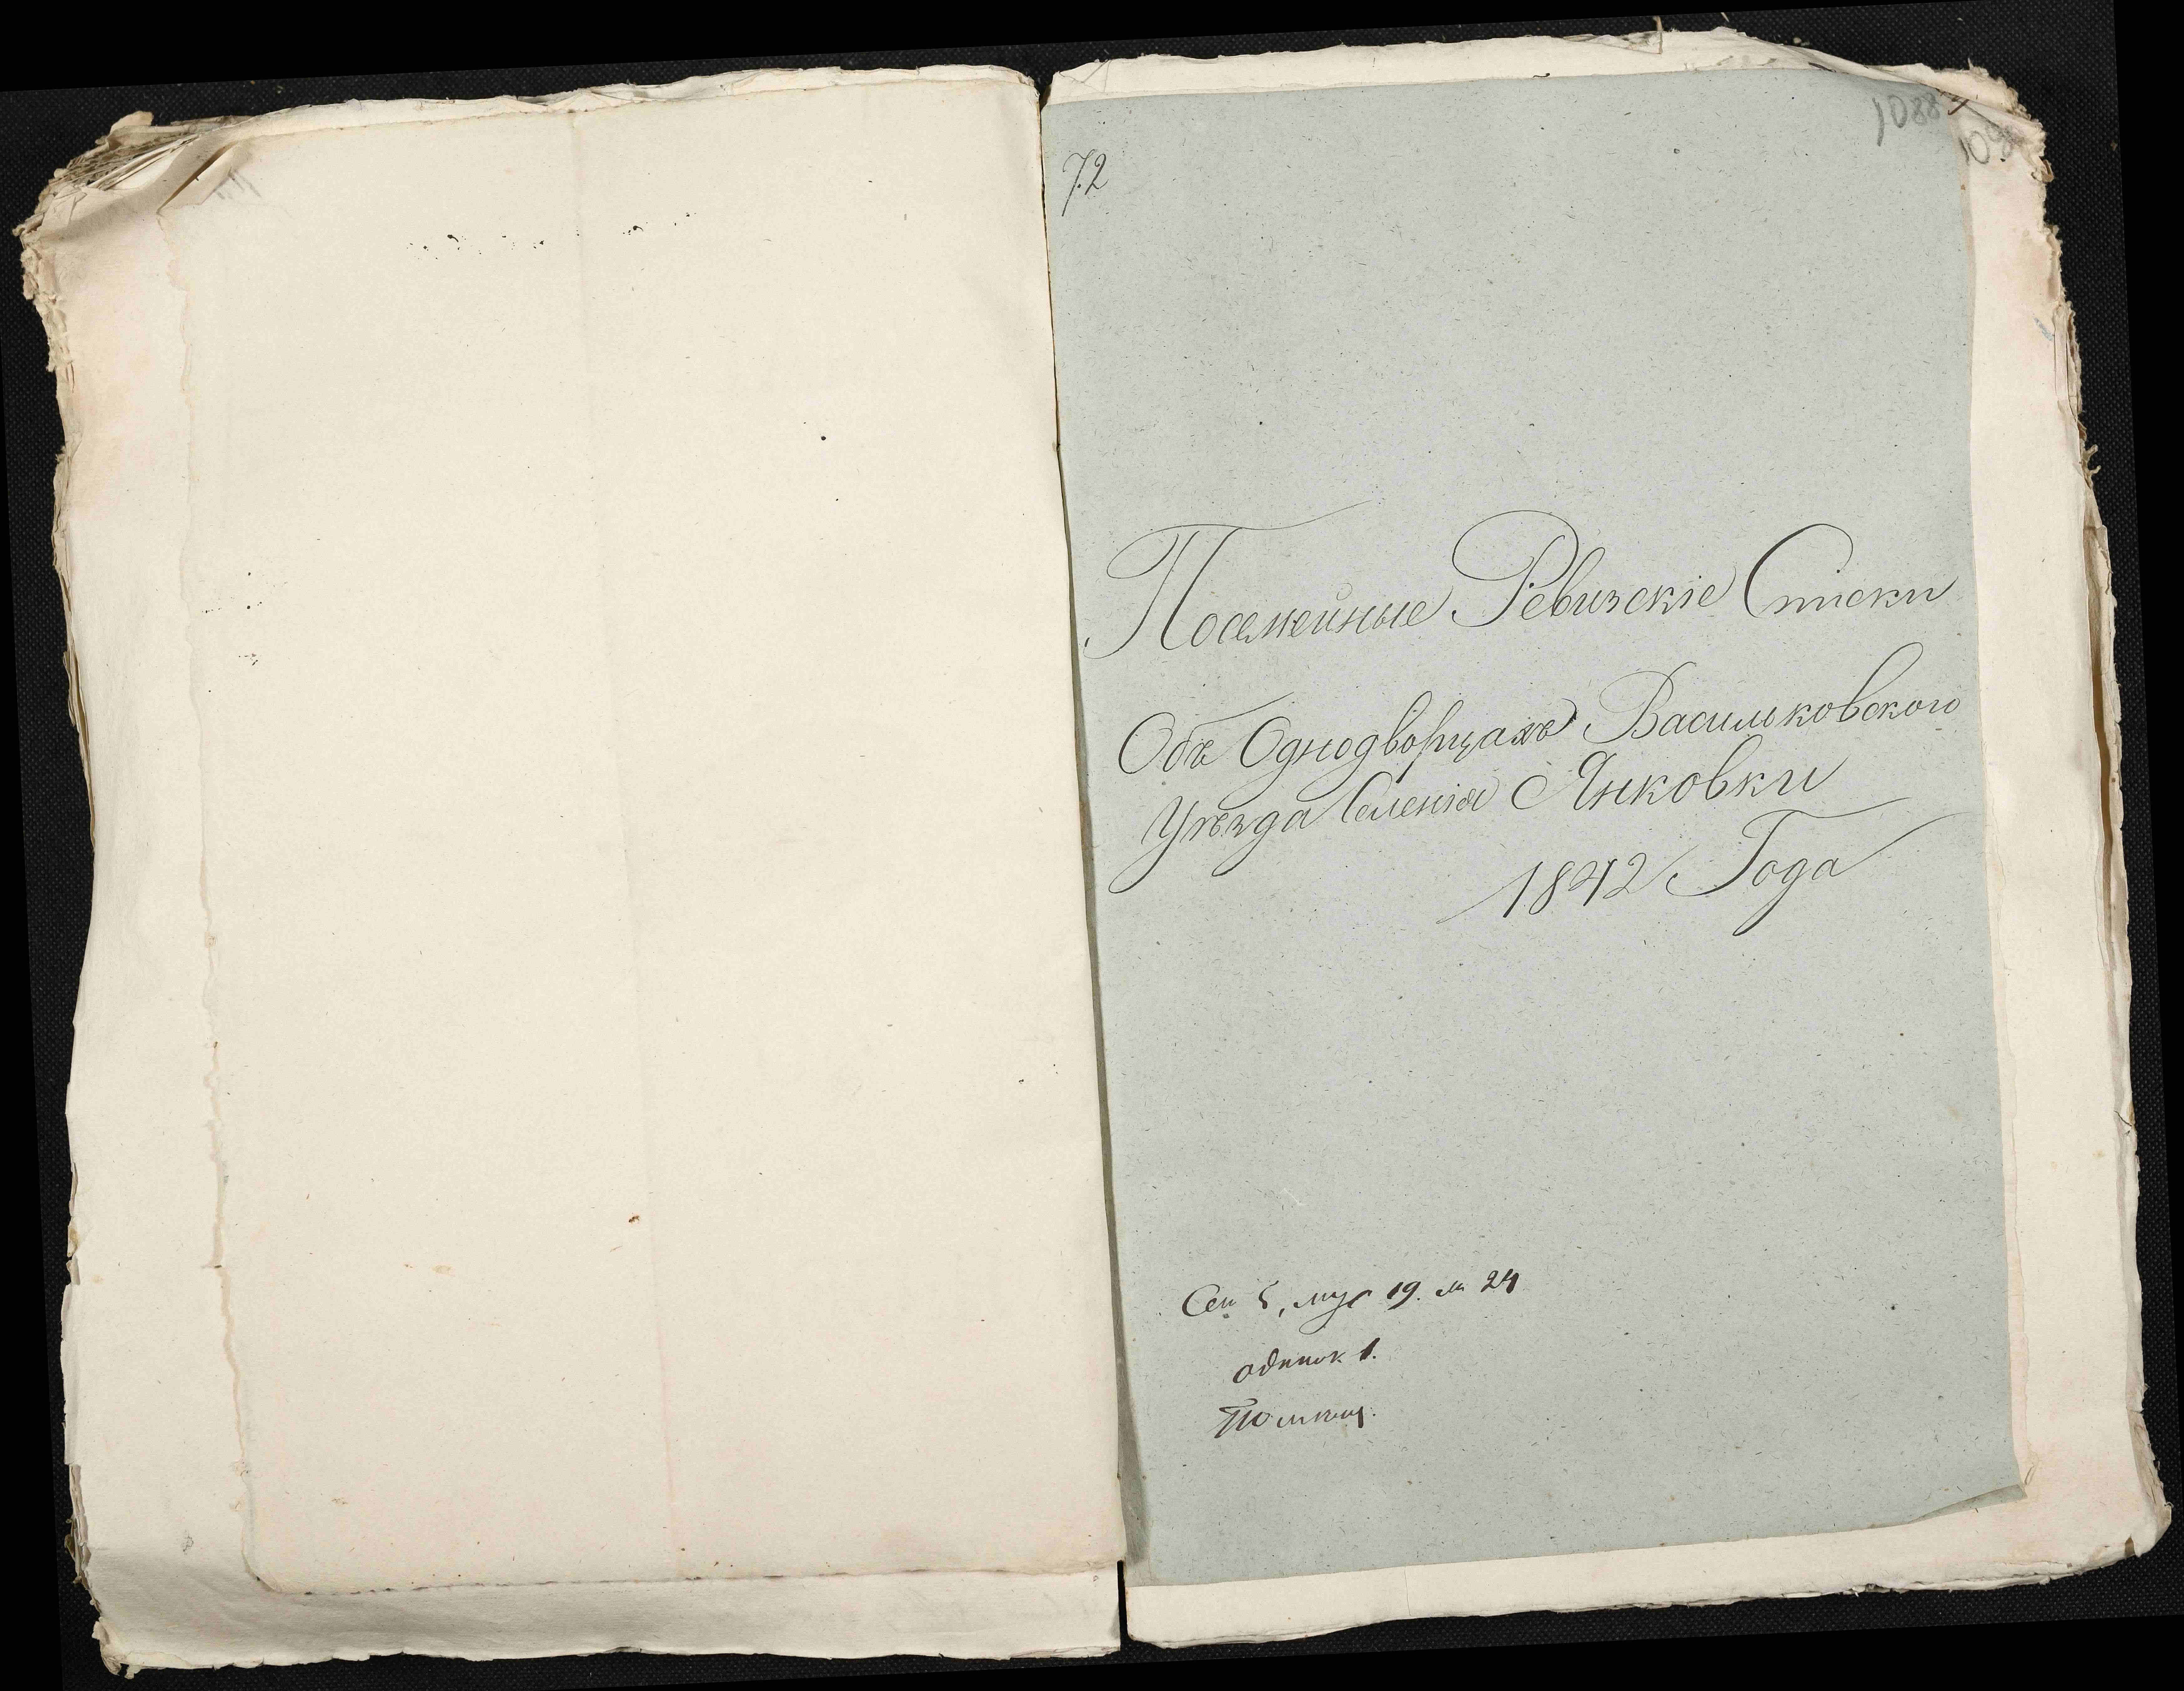 72
1088
Посемейные Ревизскіе Списки
Объ Однодворцахъ Васильковского
Уѣзда Селенія Янковки
1842 Года
Сем 5, муж 19. ж 24
одинок 1.